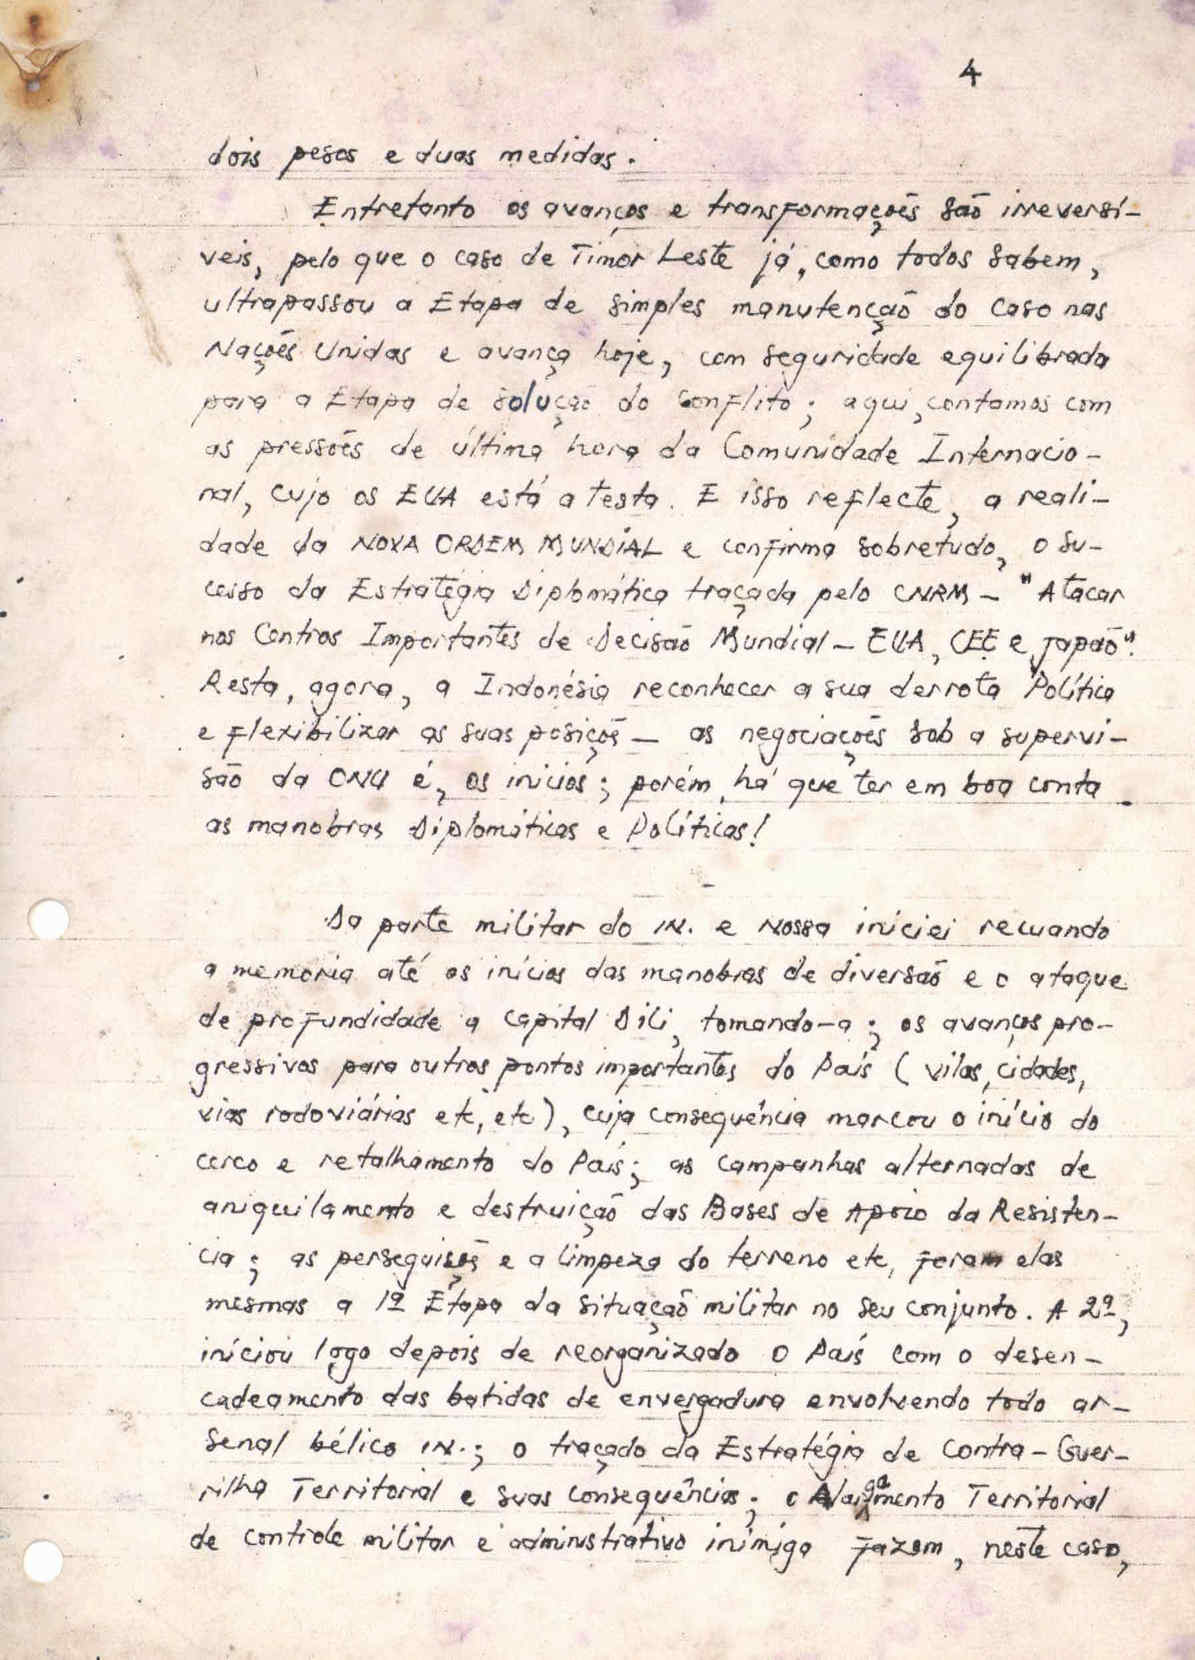 4
dois pesos e duas medidas.
Entretanto os avanços e transformações são irreversí-
veis, pelo que o caso de Timor Leste já, como todos sabem,
ultrapassou a Etapa de simples manutenção do caso nas
Nações Unidas e avança hoje, com seguridade equilibrada
para a Etapa de solução do conflito; aqui, contamos com
as pressões de última hora da Comunidade Internacio-
nal, cujo os EUA está a testa. E isso reflecte, a reali-
dade da NOVA ORDEM MUNDIAL e confirma sobretudo, o su-
cesso da Estratégia Diplomática traçada pelo CNRM - "Atacar
nos Centros Importantes de Decisão Mundial - EUA, CEE e Japão".
Resta, agora, a Indonésia reconhecer a sua derrota Política
e flexibilizar as suas posiçōs - as negociações sob a supervi-
são da ONU é, os inícios; porém, há que ter em boa conta
as manobras Diplomáticas e Políticas!
Da parte militar do IN. e Nossa iníciei recuando
a memoria até os inícios das manobras de diversão e o ataque
de profundidade a capital Dili, tomando-a; os avanços pro-
gressivos para outros pontos importantes do País (vilas, cidades,
vias rodoviárias etc, etc), cuja consequência marcou o início do
cerco e retalhamento do País; as campanhas alternadas de
aniquilamento e destruição das Bases de Apoio da Resistên-
cia; as perseguisões e a limpeza do terreno etc, foram elas
mesmas a 1ª Etapa da situação militar no seu conjunto. A 2ª,
iníciou logo depois de reorganizado o País com o desen-
cadeamento das batidas de envergadura envolvendo todo ar-
senal bélico IN.; o traçado da Estratégia de Contra-Guer-
rilha Territorial e suas consequências; o Alargamento Territorial
de controle militar e administrativo inimigo fazem, neste caso,